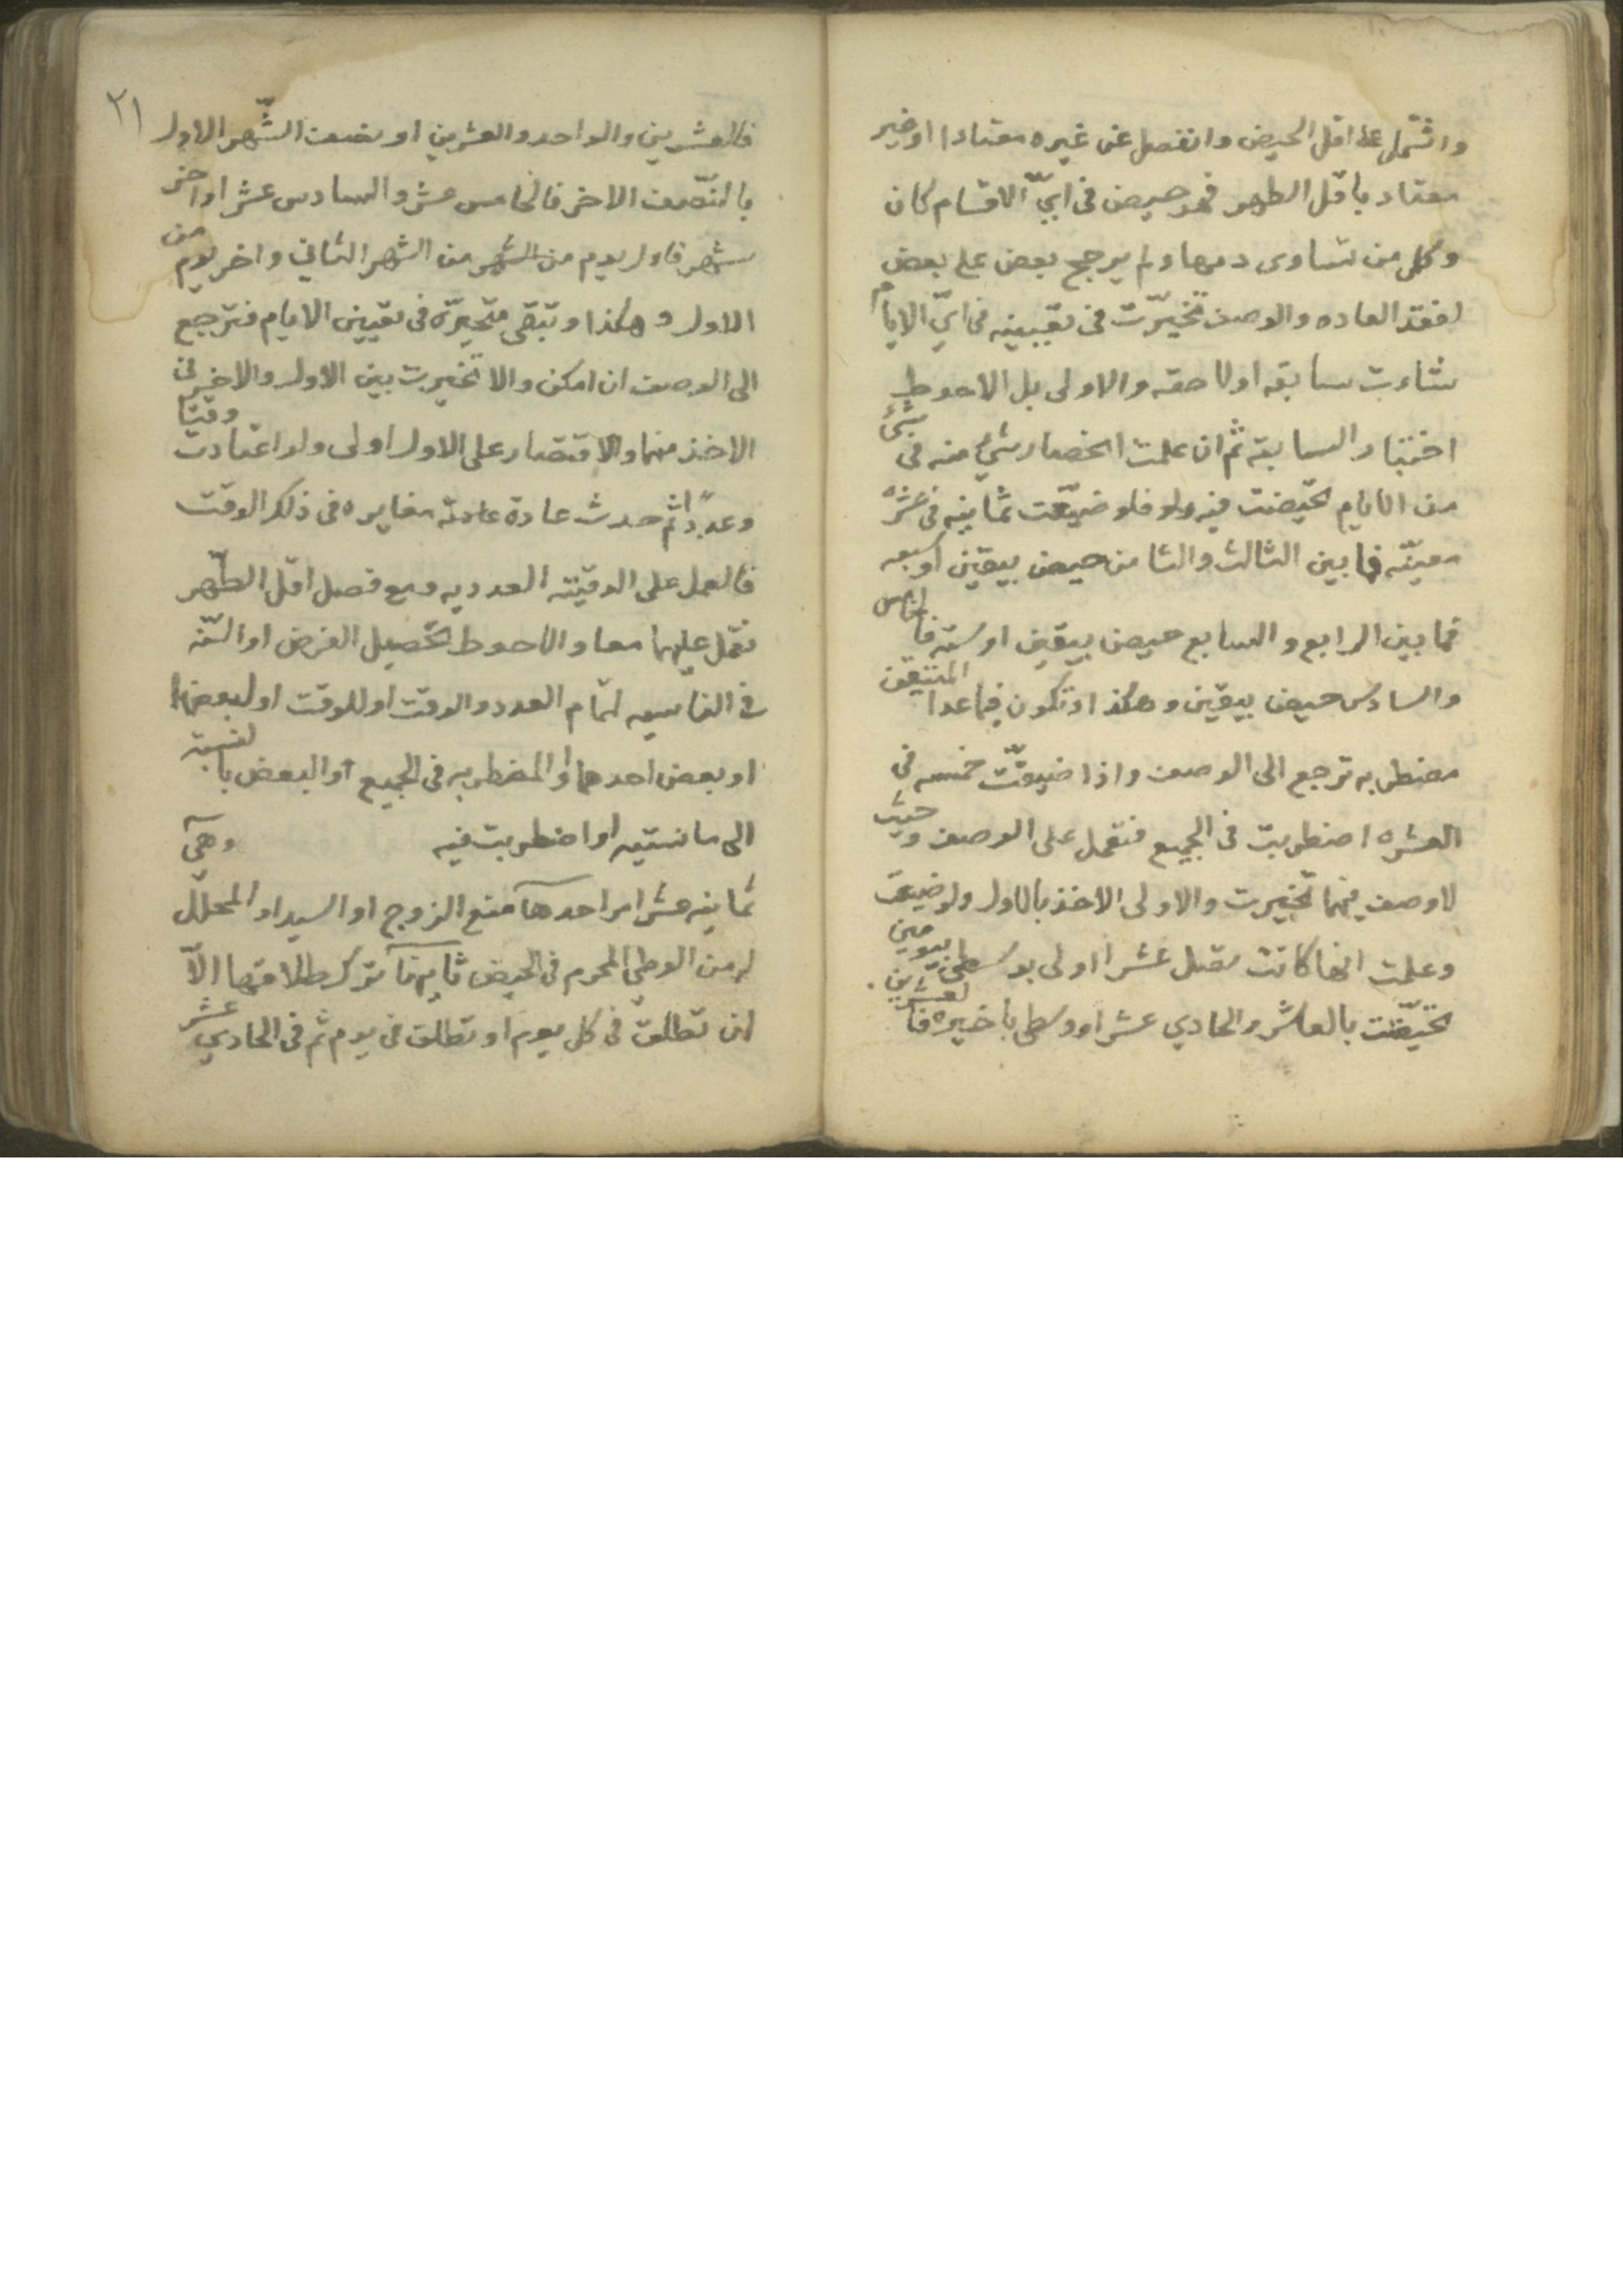 واشتمل على اقل الحيض وانفصل عن غيره معتادا او غير
معتاد باقل الطهر فهو حيض في ايّ الاقسام كان
وكل من تساوى دمها ولم يرجح بعض على بعض
لفقد العاده والوصف تخيّرت في تعيينه في ايّ الايام
شاءت سابقه او لاحقه والاولى بل الاحوط
اختيار السابقة ثم ان علمت انحصار شيء منه في شيء
من الايام تحيّضت فيه ولو فلو ضيّعت ثمانيه في عشره
معيّنه فما بين الثالث والثامن حيض بيقين او سبعه
فما بين الرابع والسابع حيض بيقين او سته فالخامس
والسادس حيض بيقين وهكذا وتكون فيما عدا المتيقن
مضطربه ترجع الى الوصف واذا ضيعّت خمسه في
العشره اضطربت في الجميع فتعمل على الوصف وحيث
لا وصف فيهما تخيرت والاولى الاخذ بالاول ولو ضيعت
وعلمت انها كانت تقبل عشرا اولى بوسطى بيومين
تحيّضت بالعاشر والحادي عشر او وسطى باخيره فا لعشرين
٢١
فالعشرين والواحد والعشرين او نصف الشّهر الاول
بالنّصف الاخر فالخامس عشر والسادس عشر او اخر
شهر فاول يوم من الشهر من الشهر الثاني واخر يوم من
الاول وهكذا وتبقى متحيّرة في تعيين الايام فترجع
الى الوصف ان امكن والا تخيرت بين الاول والاخير في
الاخذ منهما والاقتصار على الاول اولى ولو اعتادت وقتا
وعددًا ثم حدث عادة عادته مغايره في ذلك الوقت
فالعمل على الوقيّته العدديه ومع فصل اقل الطّهر
تعمل عليهما معا والاحوط لتحصيل الفرض او السّنه
في الناسيه لتمام العدد والوقت او للوقت او لبعضهما
او بعض احدهما والمضطربه في الجميع او البعض بالنسبة
الى ما نسيته او اضطربت فيه وهي
ثمانيه عشر امرا احدها منع الزوج او السيد او المحلّل
له من الوطي المحرم في الحيض ثانيها ترك طلاقها الّا
ان تطلق في كل يوم او تطلق في يوم ثم في الحادي عشر